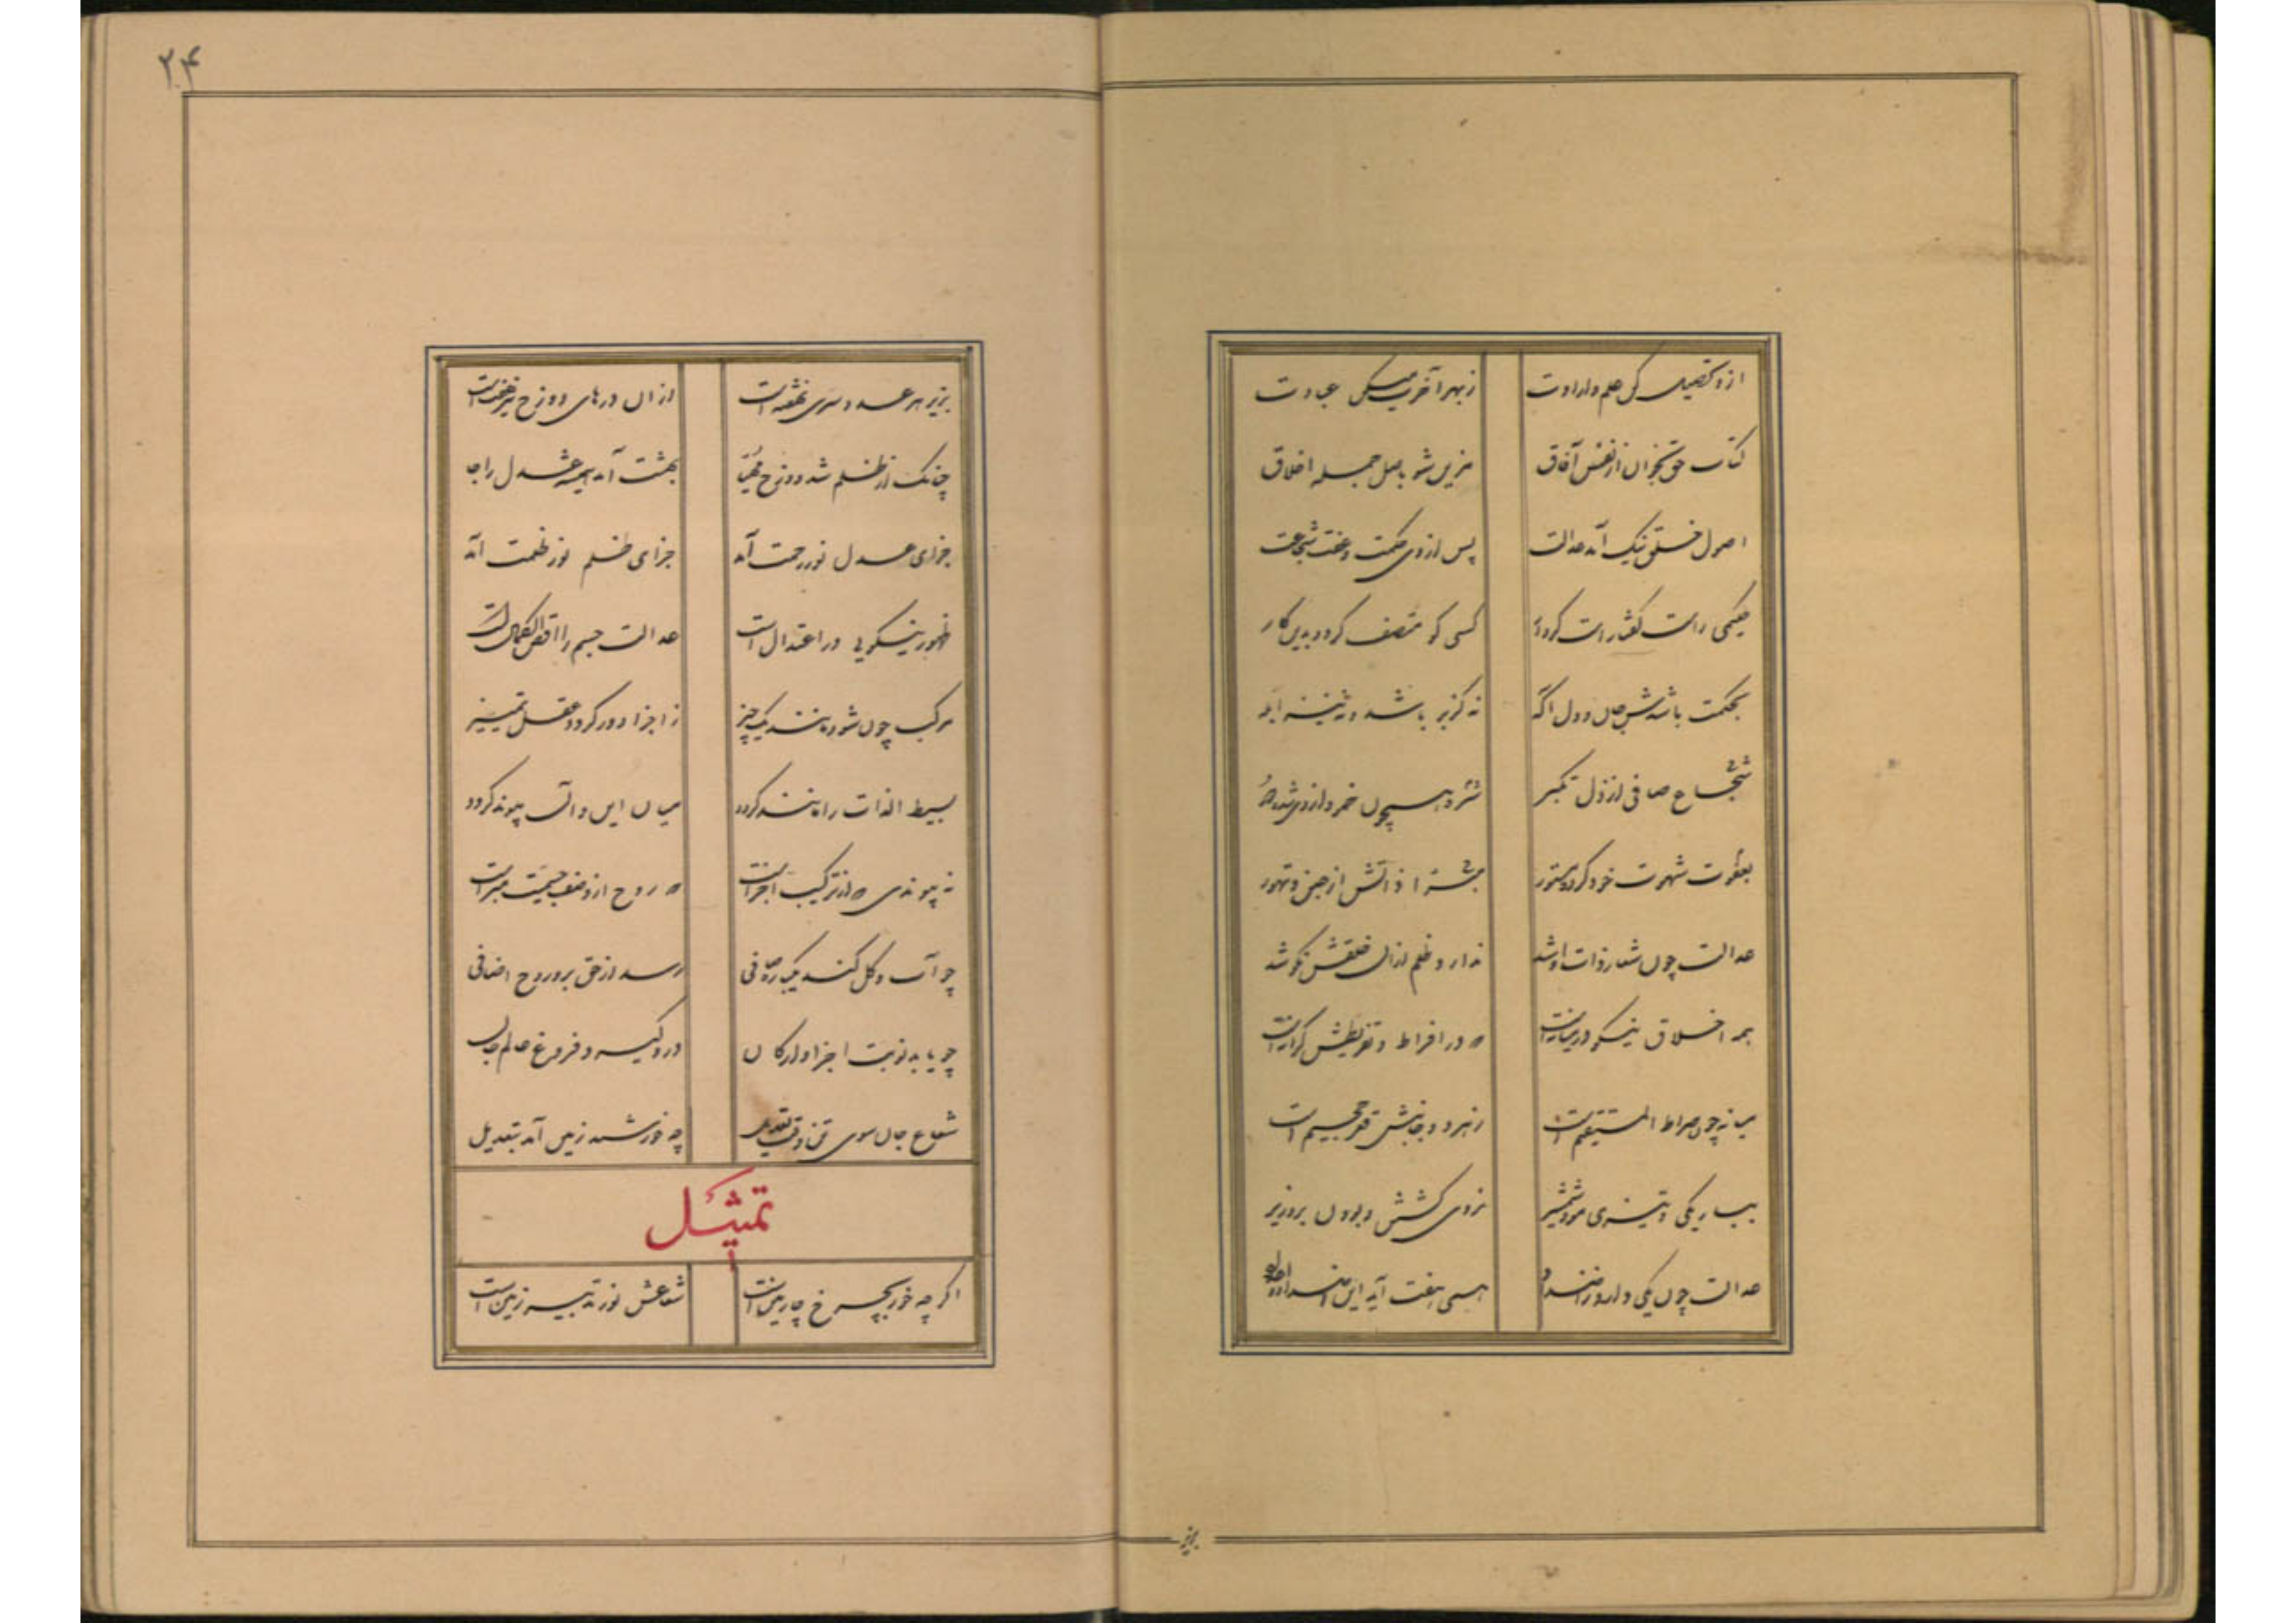 ازو تحصیل کن علم و ارادت ز بهر آخرت میکن عبادت
کتاب حق بخوان از نفس آفاق مزین شو باصل جمله اخلاق
اصول خلق نیک آمد عدالت پس از وی حکمت و عفت شجاعت
حکیمی راست گفتار است کردار کسی کو متصف گردد بدین کار
بحکمت باشدش جان و دل آگه نه گربز باشد و نه نیز ابله
شجاع صافی از ذل تکبر شره همچون خمود از وی شده دور
بعفت شهوت خود کرده مستور مبرا ذاتش از جبن و تهور
عدالت چون شعار ذات او شد ندارد ظلم ازان خلقش نکو شد
همه اخلاق نیکو در میانه است که در افراط و تفریطش کرانه است
میانه چون صراط المستقیم است ز هر دو جانبش قعر جحیم است
بباریکی و تیزی مو و شمشیر نه روی کشتن و بودن برو زیر
عدالت چون یکی دارد ز اضداد همی هفت آید این اضداد
بزیر
۲۴
بزیر هر عدد سری نهفته است ازان درهای دوزخ نیز هفت است
چنانک از ظلم شد دوزخ مهیا بهشت آمد همیشه عدل را جا
جزای عدل نور رحمت آمد جزای ظلم نور ظلمت آمد
ظهور نیکویی در اعتدال است عدالت جسم را اقصی الکمال است
مرکب چون شود مانند یک چیز ز اجزا دور گردد عقل تمییز
بسیط الذات را مانند گردد میان این و آن پیوند گردد
نه پیوندی که از ترکیب اجزاست که روح از وصف جسمیت مبراست
چو آب و گل کند یکباره صافی رسد از حق برو روح اضافی
چو یابد نوبت اجزا و ارکان درو گیرد فروغ عالم جان
شعاع جان سوی تن وقت تعدیل چه خورشید زمین آمد بتعدیل
تمثیل
اگر چه خور بچرخ چارمین است شعاعش نور تدبیر زمین است